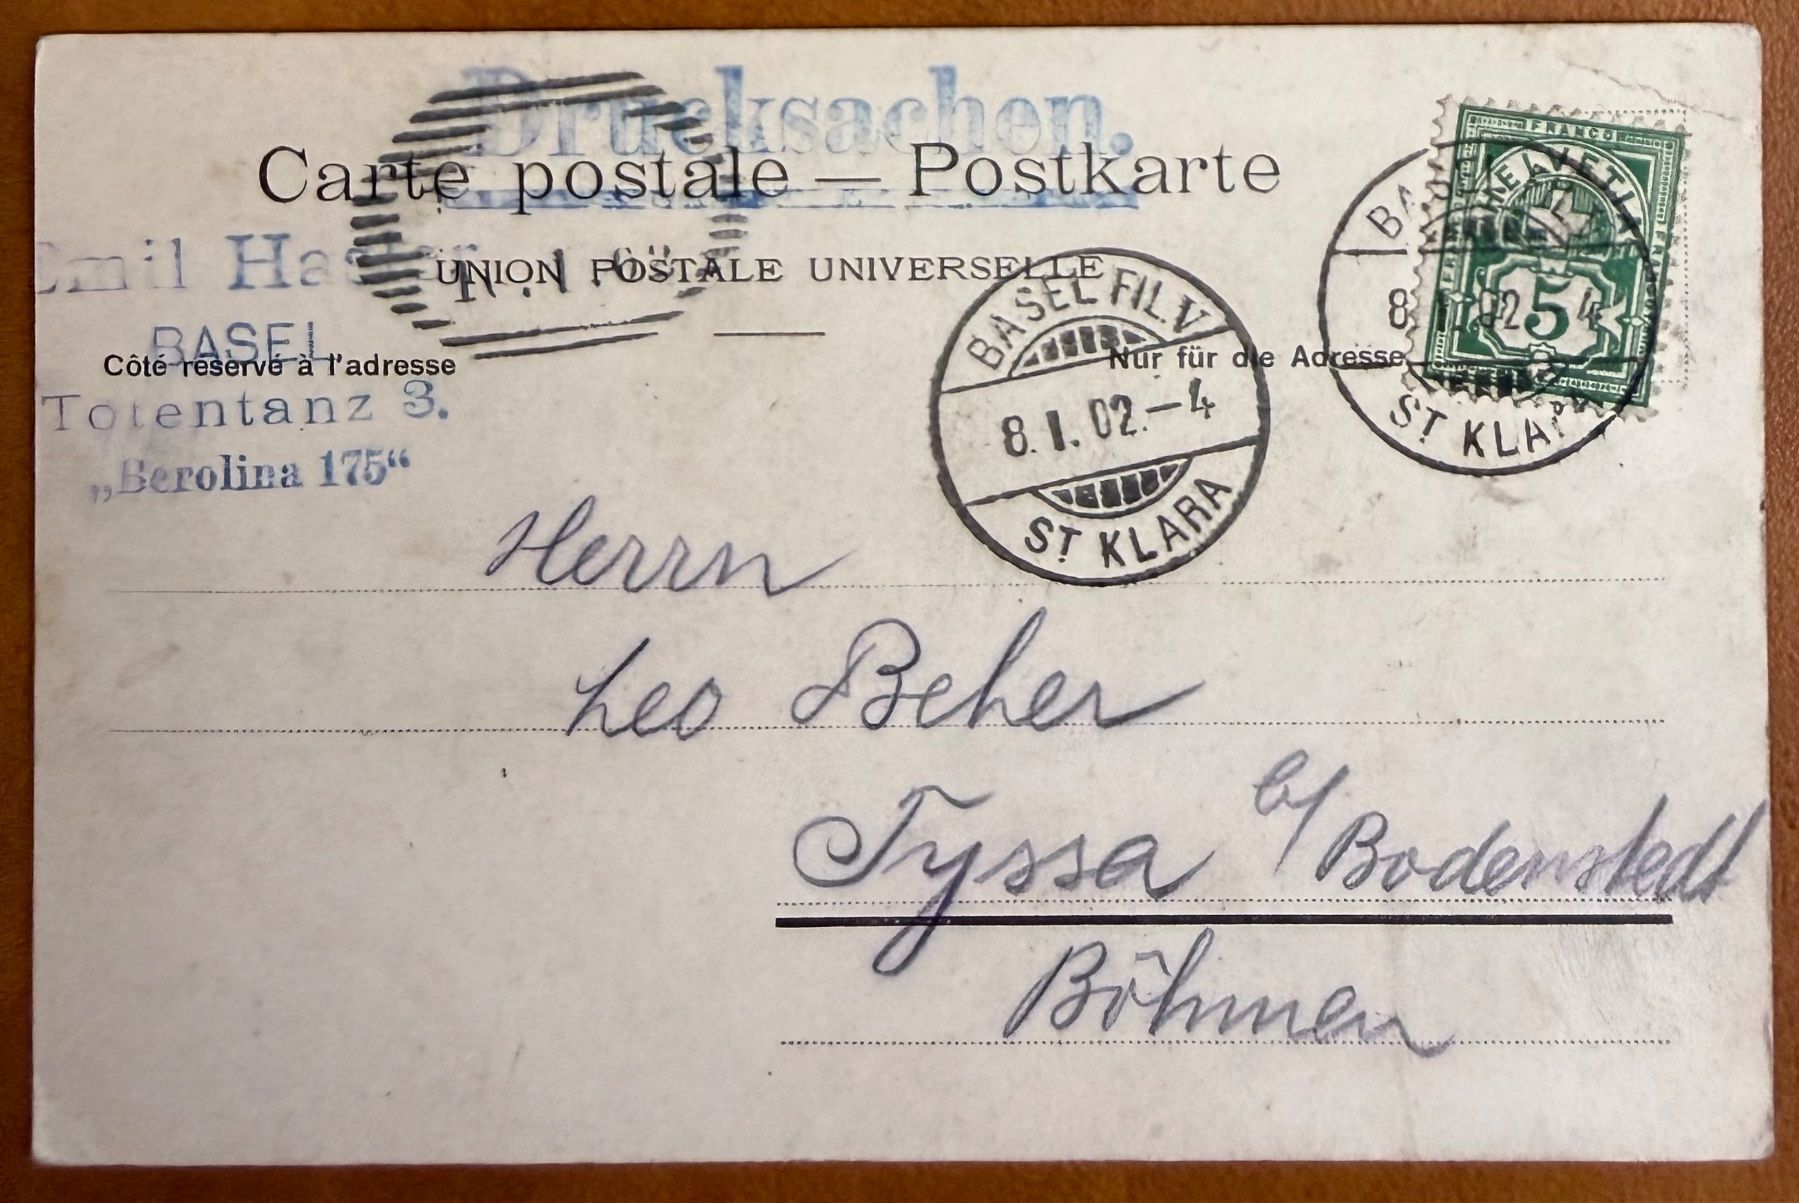 Drucksachen.
Carte postale — Postkarte
UNION POSTALE UNIVERSELLE
Côté réservé à l'adresse
Nur für die Adresse
Emil
BASEL
Totentanz 3.
„Berolina 175“
BASEL FIL. V
8. I. 02. – 4
ST KLARA
FRANCO
HELVETIA
5
8. I. 02 4
ST KLARA
Herrn
Leo Beher
Tyssa b/ Bodenstedt
Böhmen